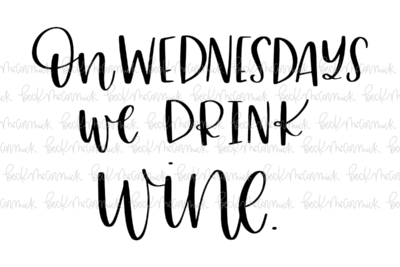 On WEDNESDAYS
we DRINK
wine.